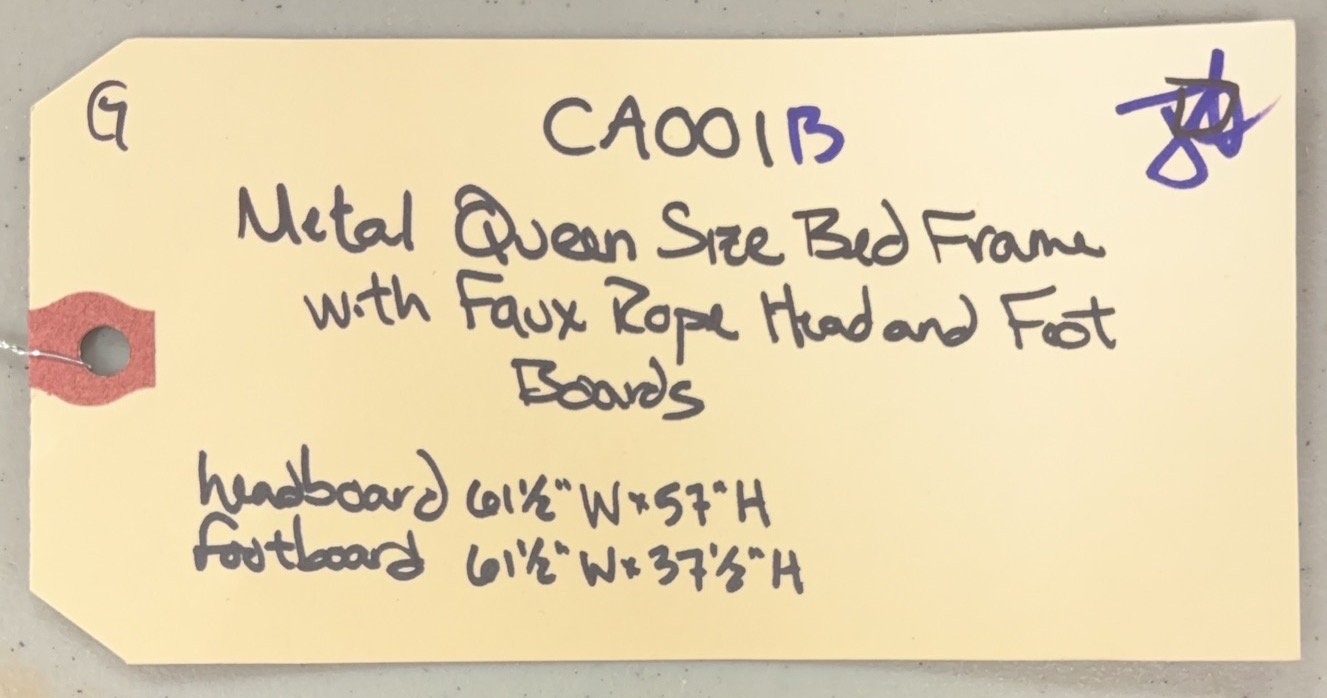 G
CA001B
Metal Queen Size Bed Frame
with Faux Rope Head and Foot
Boards
headboard 61½" W x 57" H
footboard 61½" W x 37½" H